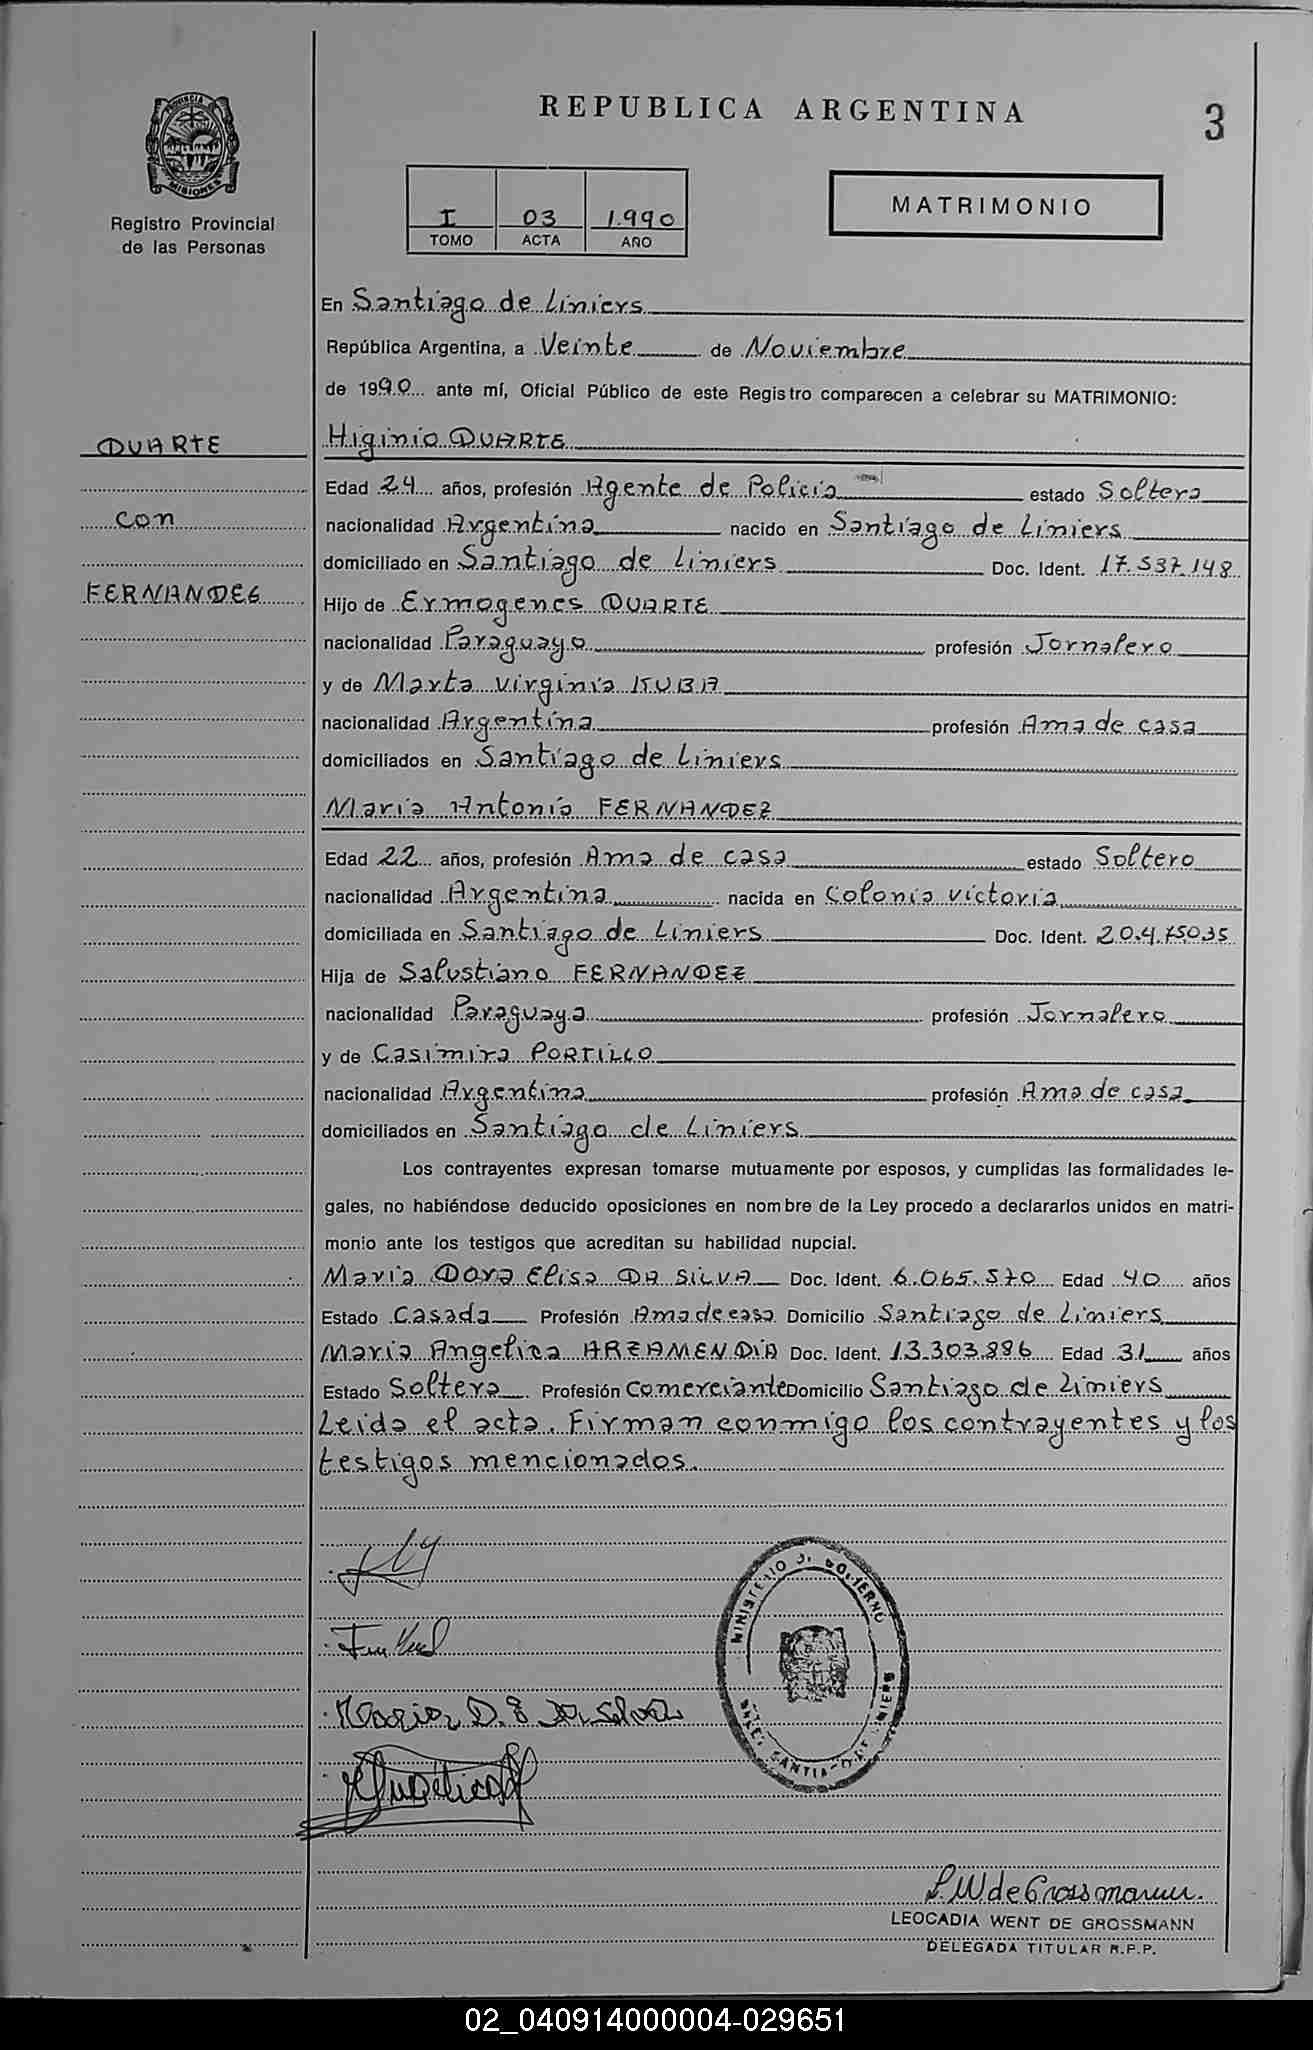 REPUBLICA ARGENTINA
3
PROVINCIA DE
MISIONES
Registro Provincial
de las Personas
I 03 1.990
TOMO ACTA AÑO
MATRIMONIO
En Santiago de Liniers
República Argentina, a Veinte de Noviembre
de 1990 ante mí, Oficial Público de este Registro comparecen a celebrar su MATRIMONIO:
DUARTE
con
FERNANDES
Higinio DUARTE
Edad 24 años, profesión Agente de Policia estado Soltera
nacionalidad Argentina nacido en Santiago de Liniers
domiciliado en Santiago de Liniers Doc. Ident. 17.537.148
Hijo de Ermogenes DUARTE
nacionalidad Paraguayo profesión Jornalero
y de Marta Virginia KUBA
nacionalidad Argentina profesión Ama de casa
domiciliados en Santiago de Liniers
Maria Antonia FERNANDEZ
Edad 22 años, profesión Ama de casa estado Soltero
nacionalidad Argentina nacida en Colonia Victoria
domiciliada en Santiago de Liniers Doc. Ident. 20.475035
Hija de Salustiano FERNANDEZ
nacionalidad Paraguaya profesión Jornalero
y de Casimira PORTILLO
nacionalidad Argentina profesión Ama de casa
domiciliados en Santiago de Liniers
Los contrayentes expresan tomarse mutuamente por esposos, y cumplidas las formalidades le-
gales, no habiéndose deducido oposiciones en nombre de la Ley procedo a declararlos unidos en matri-
monio ante los testigos que acreditan su habilidad nupcial.
Maria Dora Elisa DA SILVA Doc. Ident. 6.065.570 Edad 40 años
Estado Casada Profesión Ama de casa Domicilio Santiago de Liniers
Maria Angelica ARZAMENDIA Doc. Ident. 13.303.886 Edad 31 años
Estado Soltera Profesión Comerciante Domicilio Santiago de Liniers
Leida el acta. Firman conmigo los contrayentes y los
testigos mencionados.
Maria D. E. Da Silva
MINISTERIO D. GOBIERNO
SANTIAGO DE LINIERS
L W de Grossmann
LEOCADIA WENT DE GROSSMANN
DELEGADA TITULAR R.P.P.
02_040914000004-029651